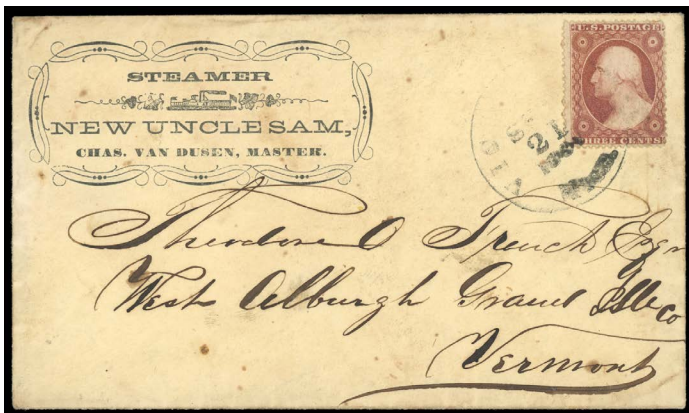 STEAMER
NEW UNCLE SAM,
CHAS. VAN DUSEN, MASTER.
U.S. POSTAGE
THREE CENTS
21
Theodore O French Esqr
West Alburgh Grand Isle Co
Vermont